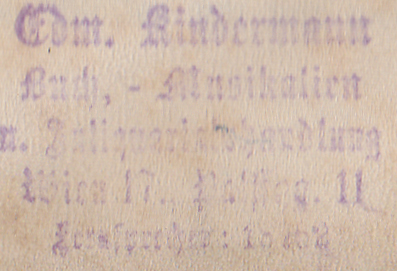 Edm. Kindermann
Buch, - Musikalien
u. Antiquariatshandlung
Wien 17.,
Fernsprecher: